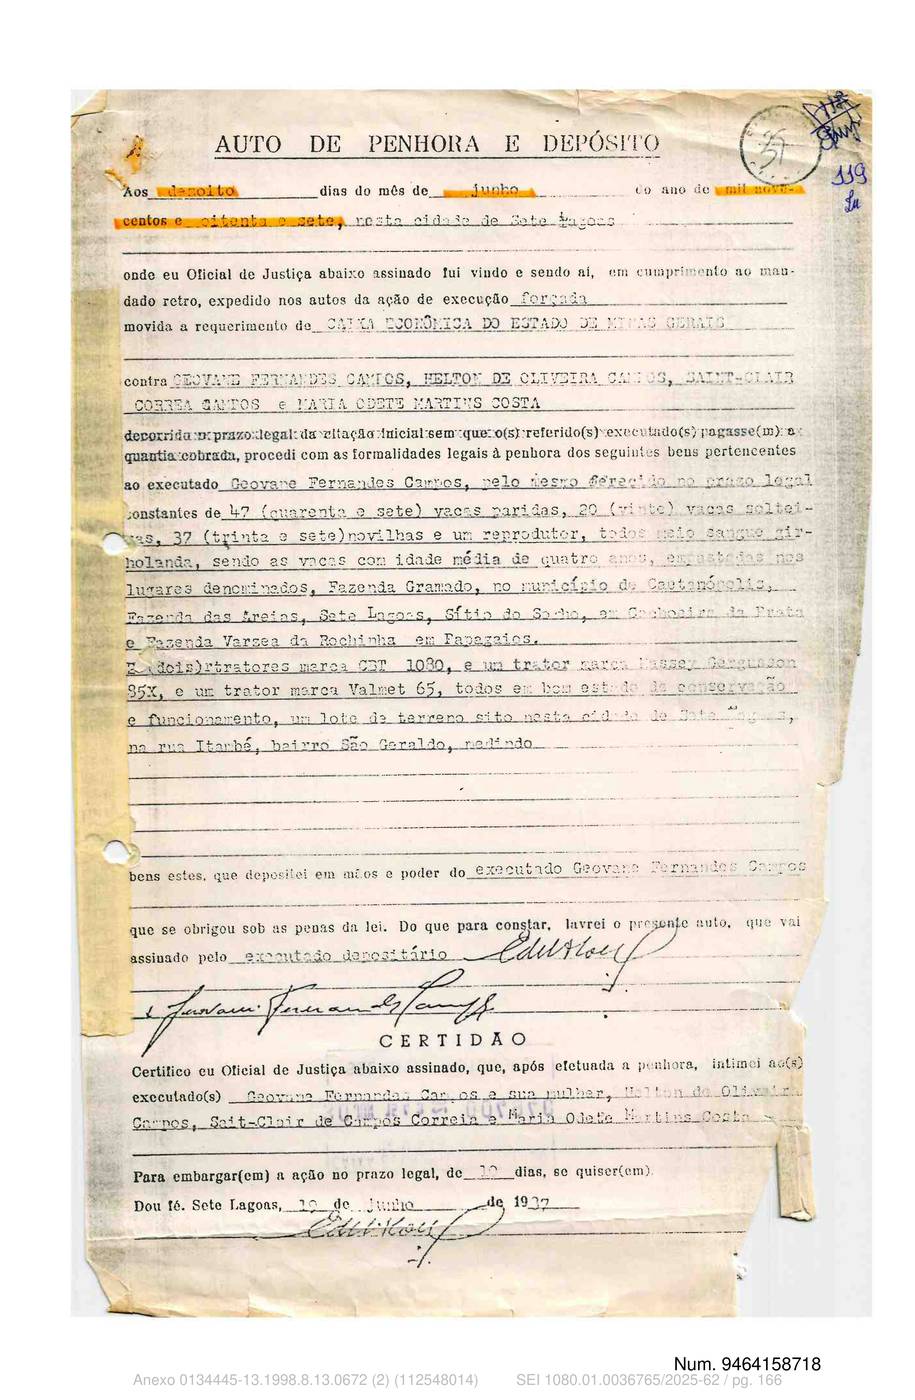 AUTO DE PENHORA E DEPÓSITO
119
Aos dezoito dias do mês de junho do ano de mil nove-
centos e oitenta e sete, nesta cidade de Sete Lagoas
onde eu Oficial de Justiça abaixo assinado fui vindo e sendo aí, em cumprimento ao man-
dado retro, expedido nos autos da ação de execução forçada
movida a requerimento de CAIXA ECONÔMICA DO ESTADO DE MINAS GERAIS
contra GEOVANE FERNANDES CAMPOS, HELTON DE OLIVEIRA CAMPOS, SAINT-CLAIR
CORREA CAMPOS e MARIA ODETE MARTINS COSTA
decorrido o prazo legal da citação inicial sem que o(s) referido(s) executado(s) pagasse(m) a
quantia cobrada, procedi com as formalidades legais à penhora dos seguintes bens pertencentes
ao executado Geovane Fernandes Campos, pelo mesmo oferecido no prazo legal
constantes de 47 (quarenta e sete) vacas paridas, 20 (vinte) vacas soltei-
ras, 37 (trinta e sete)novilhas e um reprodutor, todos meio sangue gir-
holanda, sendo as vacas com idade média de quatro anos, empastadas nos
lugares denominados, Fazenda Gramado, no município de Caetanópolis,
Fazenda das Areias, Sete Lagoas, Sítio do Socho, em Cachoeira da Prata
e Fazenda Varzea da Rochinha em Papagaios.
2 (dois)rtratores marca CBT 1080, e um trator marca Massey Gergusson
85X, e um trator marca Valmet 65, todos em bom estado de conservação
e funcionamento, um lote de terreno sito nesta cidade de Sete Lagoas,
na rua Itambé, bairro São Geraldo, medindo
bens estes, que depositei em mãos e poder do executado Geovane Fernandes Campos
que se obrigou sob as penas da lei. Do que para constar, lavrei o presente auto, que vai
assinado pelo executado depositário
Geovane Fernandes Campos
CERTIDÃO
Certifico eu Oficial de Justiça abaixo assinado, que, após efetuada a penhora, intimei ao(s)
executado(s) Geovane Fernandes Campos e sua mulher, Helton de Oliveira
Campos, Sait-Clair de Campos Correia e Maria Odete Martins Costa
Para embargar(em) a ação no prazo legal, de 10 dias, se quiser(em).
Dou fé. Sete Lagoas, de junho de 19
Num. 9464158718
Anexo 0134445-13.1998.8.13.0672 (2) (112548014) SEI 1080.01.0036765/2025-62 / pg. 166